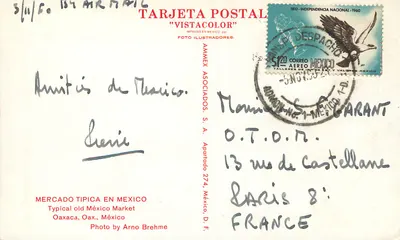 3/11/60 BY AIR MAIL
TARJETA POSTAL
"VISTACOLOR"
FOTO ILUSTRADORES
1810 · INDEPENDENCIA NACIONAL · 1960
$1.20 CORREO AEREO MEXICO
DESPACHO
5 NOV.
ADMON. No. 1-MEXICO 1-D.
AMMEX ASOCIADOS, S. A. Apartado 274, México, D. F.
Amitiés de Mexico.
Monsieur GARANT
O.T.D.M.
13 rue de Castellane
PARIS 8e
FRANCE
MERCADO TIPICA EN MEXICO
Typical old México Market
Oaxaca, Oax., México
Photo by Arno Brehme